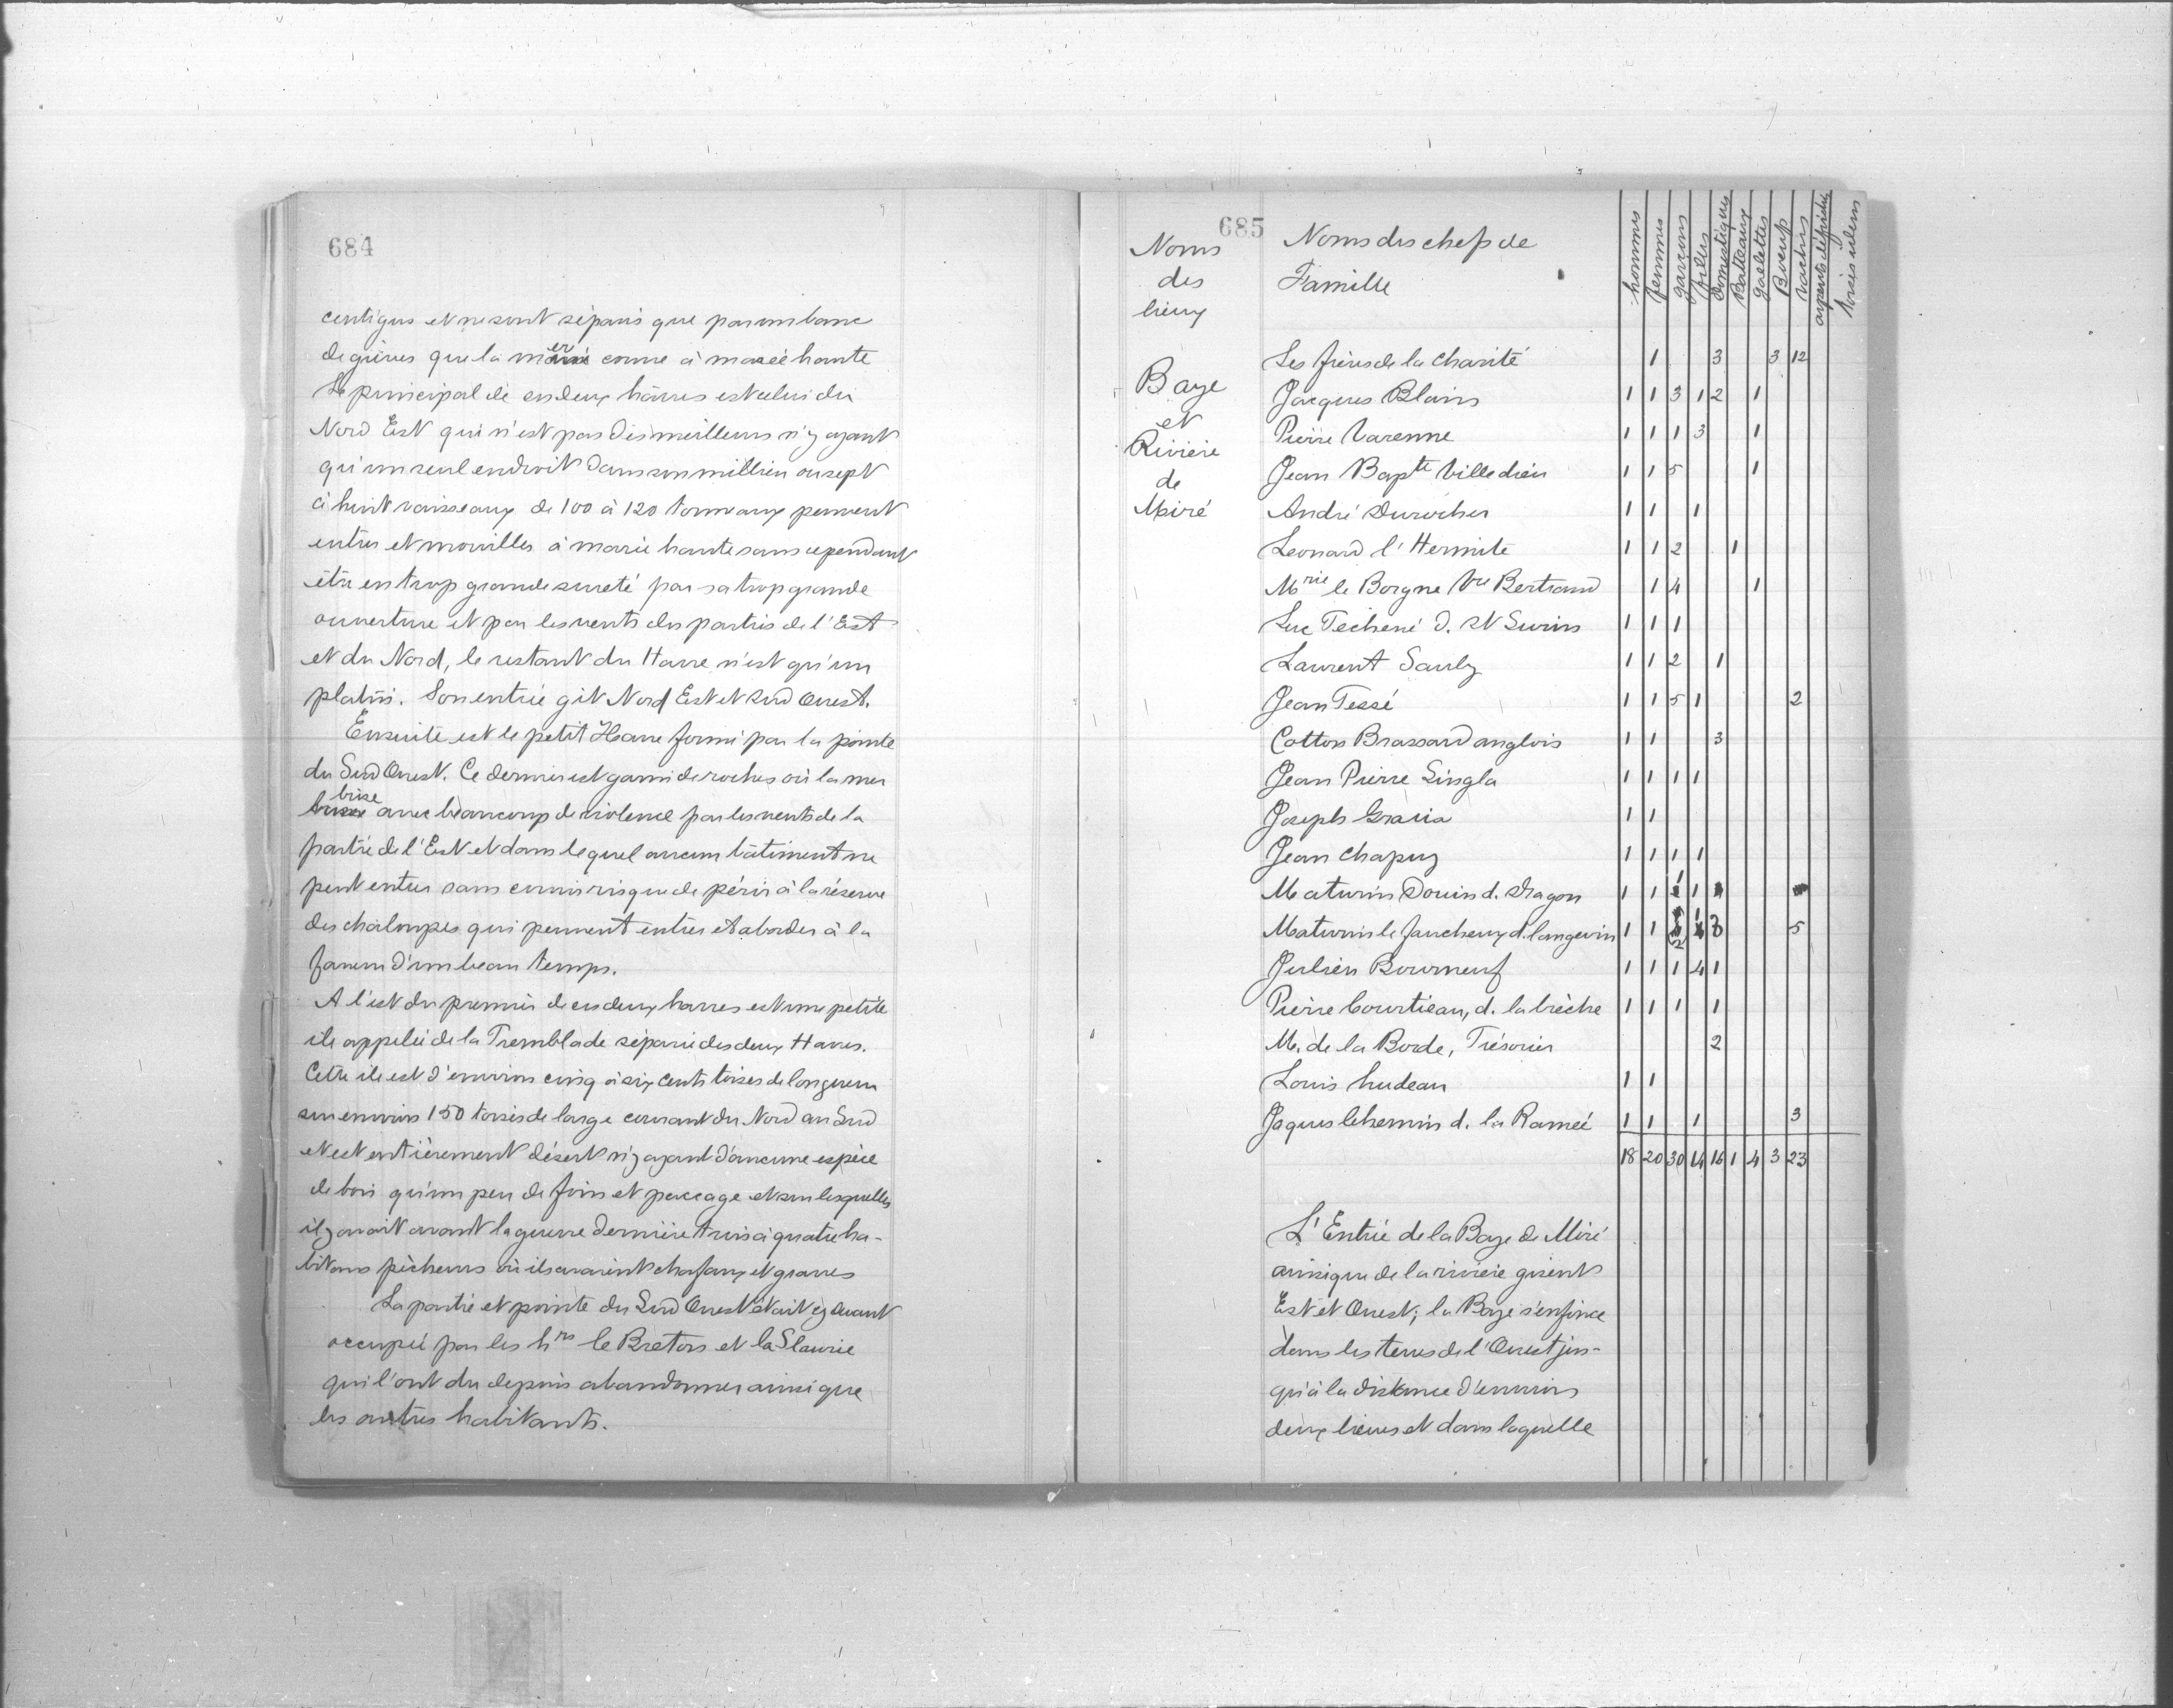 684
contigus et ne sont séparés que par un banc
de grèves que la mer couvre à marée haute
Le principal de ces deux hâvres est celui du
Nord Est qui n'est pas des meilleurs n'y ayant
qu'un seul endroit dans son millieu ou sept
à huit vaisseaux de 100 à 120 tonneaux peuvent
entrer et mouiller à marée haute sans cependant
être en trop grande sureté par sa trop grande
ouverture et par les vents des parties de l'Est
et du Nord, le restant du Havre n'est qu'un
platin. Son entrée git Nord Est et Sud Ouest.
Ensuite est le petit Havre formé par la pointe
du Sud Ouest. Ce dernier est garni de roches où la mer
brise avec beaucoup de violence par les vents de la
partie de l'Est et dans lequel aucun bâtiment ne
peut entrer sans courir risque de périr à la réserve
des chaloupes qui peuvent entrer et aborder à la
faveur d'un beau temps.
A l'est du premier de ces deux havres est une petite
ile appelée de la Tremblade séparée des deux Havres.
Cette ile est d'environ cinq à six cents toises de longueur
sur environ 150 toises de large courant du Nord au Sud
et est entièrement désert n'y ayant d'aucune espèce
de bois qu'un peu de foin et paccage et sur lesquelles
il y avait avant la guerre dernière trois à quatre ha-
bitans pècheurs où ils avaient chafaux et graves
La partie et pointe du Sud Ouest était cy devant
occupée par les hrs le Breton et la Fleurie
qui l'ont du depuis abandonner ainsi que
les autres habitants.
685
Noms des lieux
Noms des chefs de Famille
hommes femmes garçons filles domestiques Batteaux gaelettes Boeufs vaches arpents défrichés toises idem
Baye et Rivière de Miré
Les frères de la Charité 1 3 3 12
Jacques Blain 1 1 3 1 2 1
Pierre Varenne 1 1 1 3 1
Jean Bapte Villedieu 1 1 5 1
André Durocher 1 1 1
Leonard l'Hermite 1 1 2 1
Mrie le Borgne Vve Bertrand 1 4 1
Luc Techené d. St Surin 1 1 1
Laurent Sauly 1 1 2 1
Jean Tessé 1 1 5 1 2
Cotton Brassard anglois 1 1 3
Jean Pierre Lingla 1 1 1 1
Joseph Gracia 1 1
Jean Chapuy 1 1 1 1
Maturin Douin d. Dragon 1 1 1 1
Maturin le faucheux d. langevin 1 1 2 1 3 5
Julien Bourneuf 1 1 1 4 1
Pierre Courtieau, d. la brèche 1 1 1 1
M. de la Borde, Trésorier 2
Louis hudeau 1 1
Jaques lehemin d. la Ramée 1 1 1 3
18 20 30 14 16 1 4 3 23
L'Entrée de la Baye de Miré
ainsi que de la rivière gisent
Est et Ouest; la Baye s'enfonce
dans les terres de l'Ouest jus-
qu'à la distance d'environ
deux lieues et dans laquelle